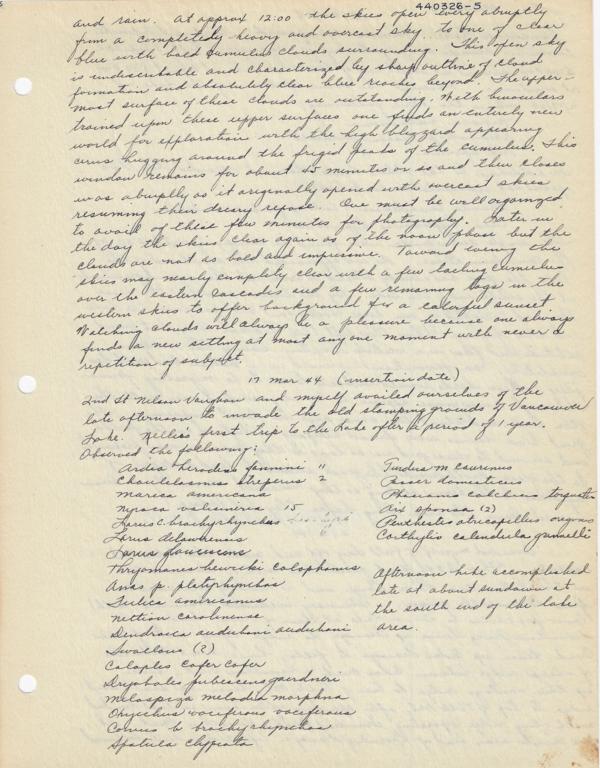 440326-5
and rain. At approx 12:00 the skies open very abruptly
from a completely heavy and overcast sky to one of clear
blue with bold cumulus clouds surrounding. This open sky
is undescribable and characterized by sharp outline of cloud
formation and absolutely clear blue reaches beyond. The upper-
most surface of these clouds are outstanding. With binoculars
trained upon these upper surfaces one finds an entirely new
world for exploration with the high blizzard appearing
cirus hugging around the frigid peaks of the cumulus. This
window remains for about 45 minutes or so and then closes
as abruptly as it originally opened with overcast skies
resuming their dreary repose. One must be well organized
to avail of these few minutes for photography. Later in
the day the skies clear again as of the noon phase but the
clouds are not as bold and impressive. Toward evening the
skies may nearly completely clear with a few lacking cumulus
over the eastern Cascades and a few remaining in the
western skies to offer background for a colorful sunset.
Watching clouds will always be a pleasure because one always
finds a new setting at most any one moment with never a
repetition of subject.
17 Mar 44 (insertion date)
2nd Lt Nelson Vaughan and myself availed ourselves of the
late afternoon to invade the old stomping grounds of Vancouver
Lake. Nellie's first trip to the Lake after a period of 1 year.
Observed the following:
Ardea herodias fannini 11
Chaulelasmus streperus 2
Mareca americana
Nyroca valisineria 15
Larus c. brachyrhynchus
Larus delawarensis
Larus glaucescens
Thryomanes bewicki calophonus
Anas p. platyrhynchos
Fulica americanus
Nettion carolinense
Dendroica auduboni auduboni
Swallows (?)
Colaptes cafer cafer
Dryobates pubescens gairdneri
Melospiza melodia morphna
Oxyechus vociferous vociferous
Corvus b brachyrhynchos
Spatula clypeata
Turdus m caurinus
Passer domesticus
Phasianus colchicus torquatus
Aix sponsa (2)
Penthestes atricapillus
Corthylio calendula grinnelli
Afternoon hike accomplished
late at about sundown at
the south end of the lake
area.